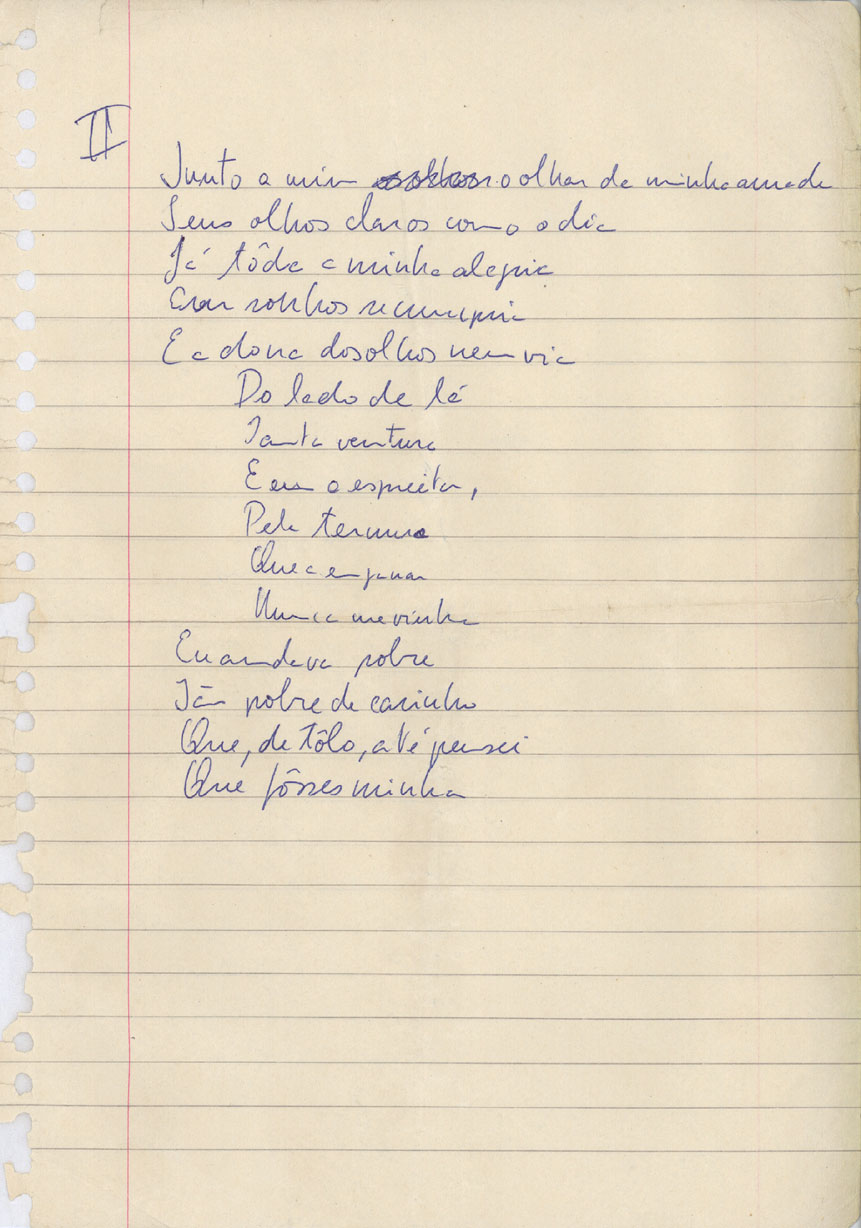 II
Junto a mim o olhar da minha amada
Seus olhos claros como o dia
Já tôda a minha alegria
sonhos
E a dona dos olhos nem via
Do lado de lá
Tanta ventura
E eu a espreitar,
Pela ternura
Que a enganar
Nunca me vinha
Eu andava pobre
Tão pobre de carinho
Que, de tôlo, até pensei
Que fôsses minha